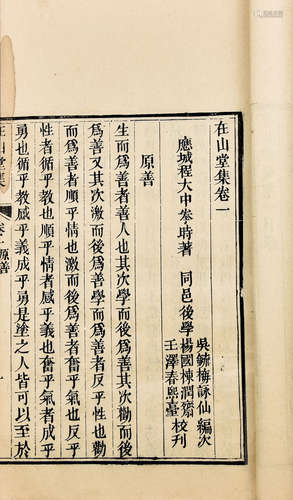 在山堂集卷一
應城程大中拳時著　同邑後學
吳毓梅詠仙編次
楊國棟潤齋
王澤春熙臺校刊
原善
生而爲善者善人也其次學而後爲善又其次勸而後
爲善又其次激而後爲善學而爲善者反乎性也勸
而爲善者順乎情也激而後爲善者奮乎氣也反乎
性者循乎教也順乎情者感乎義也奮乎氣者成乎
勇也循乎教感乎義成乎勇是塗之人皆可以至於
在山堂集
卷一原善
一